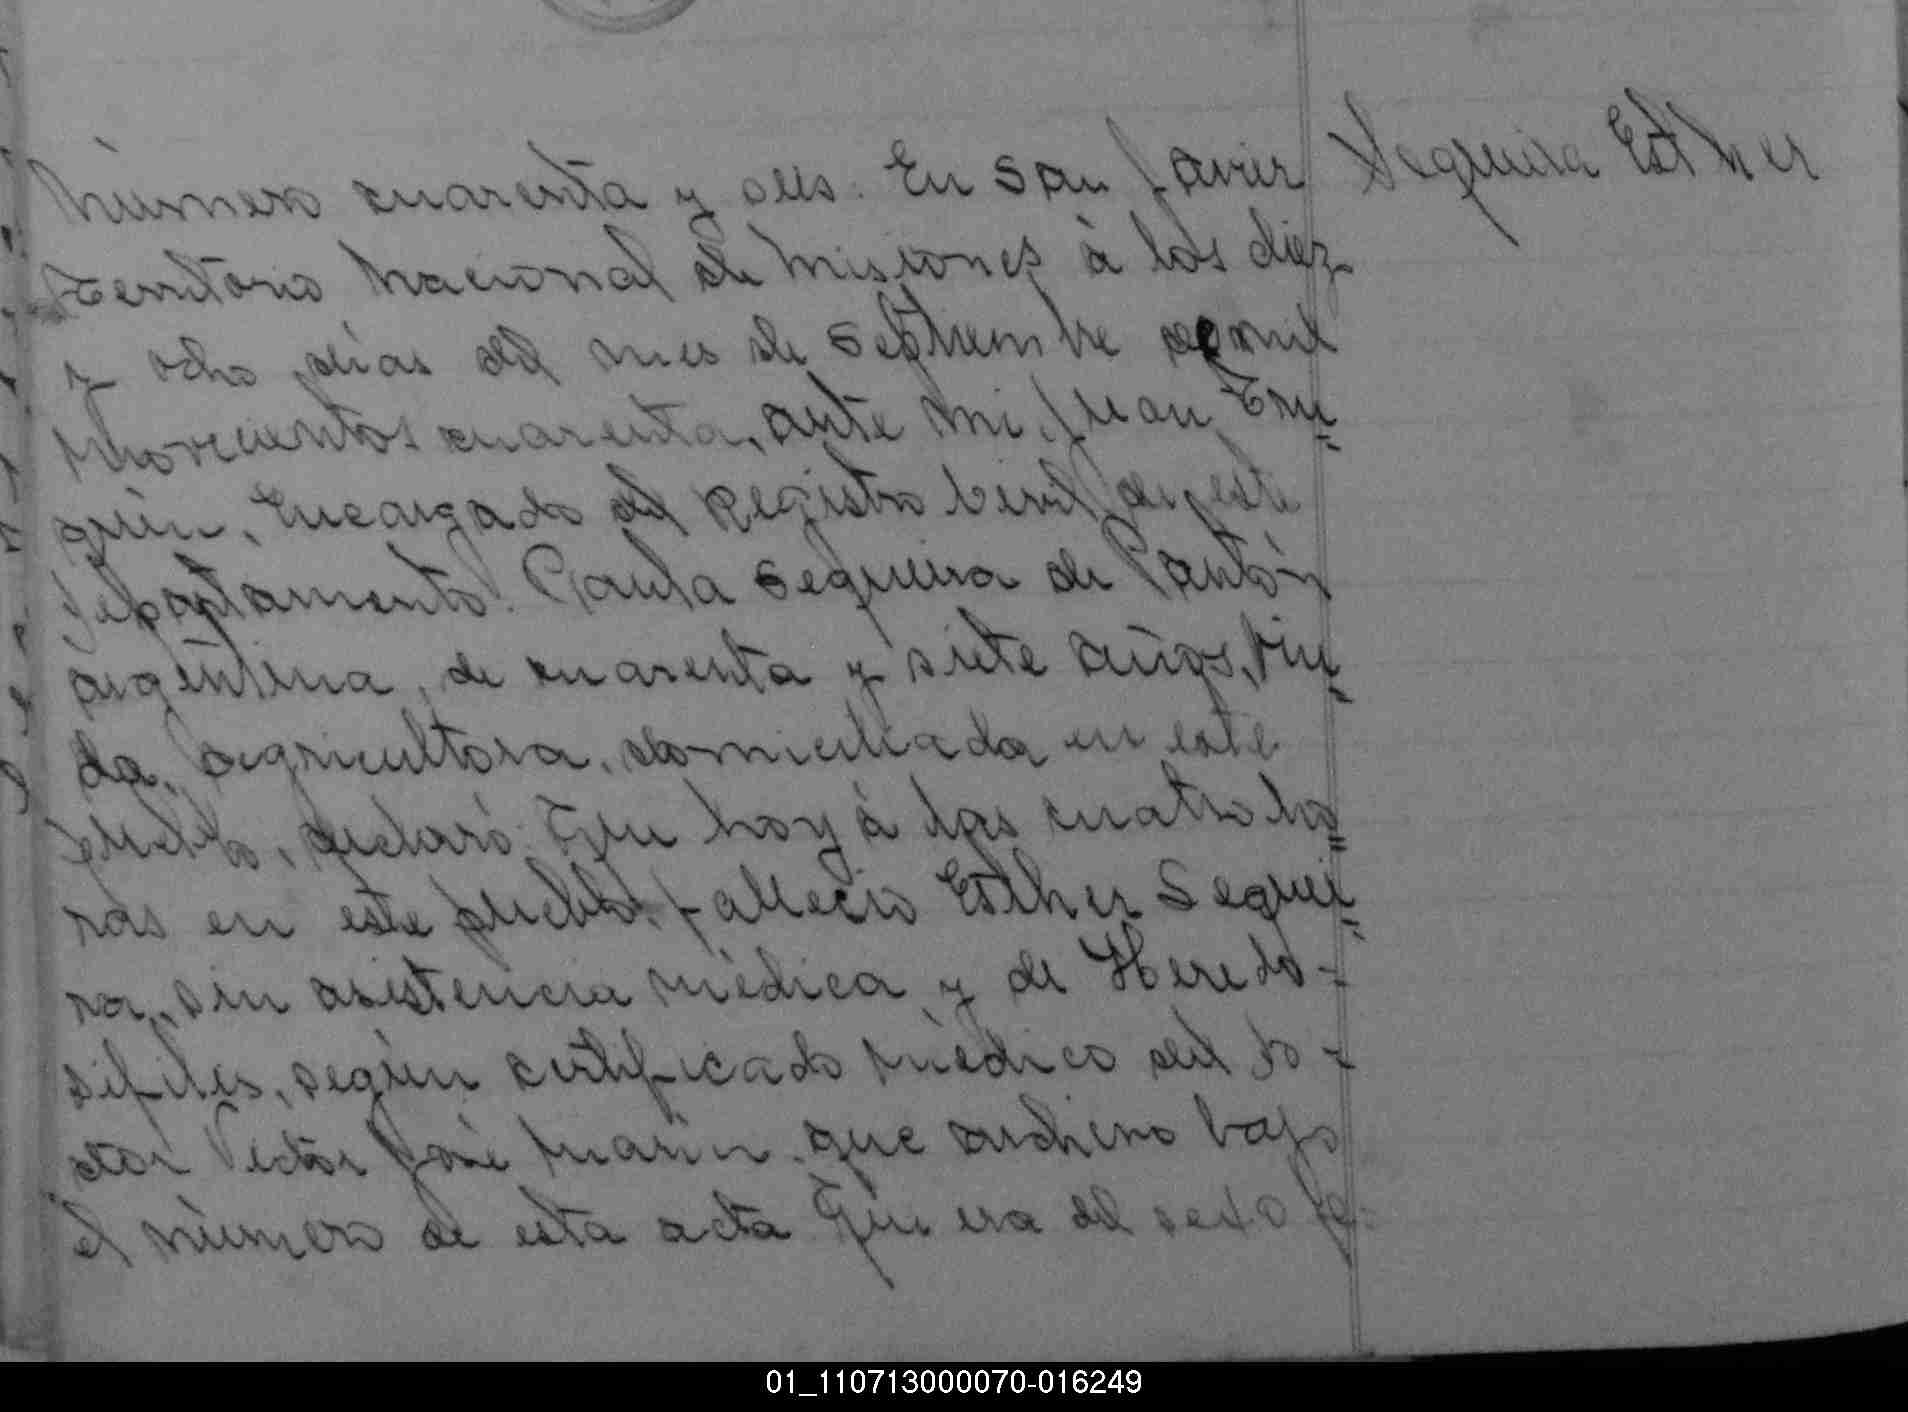 Número cuarenta y dos. En San Javier
Sequeira Esther
Territorio Nacional de Misiones à los diez
y ocho dias del mes de Septiembre de mil
novecientos cuarenta, ante mi, Juan
quin, Encargado del Registro Civil de este
Departamento. Paula Sequeira de
argentina, de cuarenta y siete años, viu=
da, agricultora, domiciliada en este
pueblo, declaró: Que hoy à las cuatro ho=
ras en este pueblo, falleció Esther Sequei=
ra, sin asistencia mèdica y de Heredo-
sifiles, segùn certificado mèdico del do-
ctor Victor Josè Marin que archivo bajo
el nùmero de esta acta Que era del sexo fe=
01_110713000070-016249